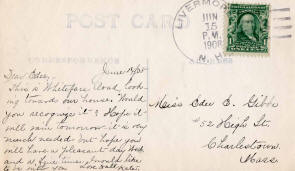 POST CARD
LIVERMORE
JUN
15
P.M.
1908
N.H.
CORRESPONDENCE
June 15/08
Dear Edee,
This is Whiteface Cloud, look-
ing towards our house. Would
you recognize it? Hope it
will rain tomorrow it is very
much needed but hope you
will have a pleasant day
and a fine time, would like
to be with you. Love
Miss Edee E. Gibb
#52 High St.
Charlestown.
Mass